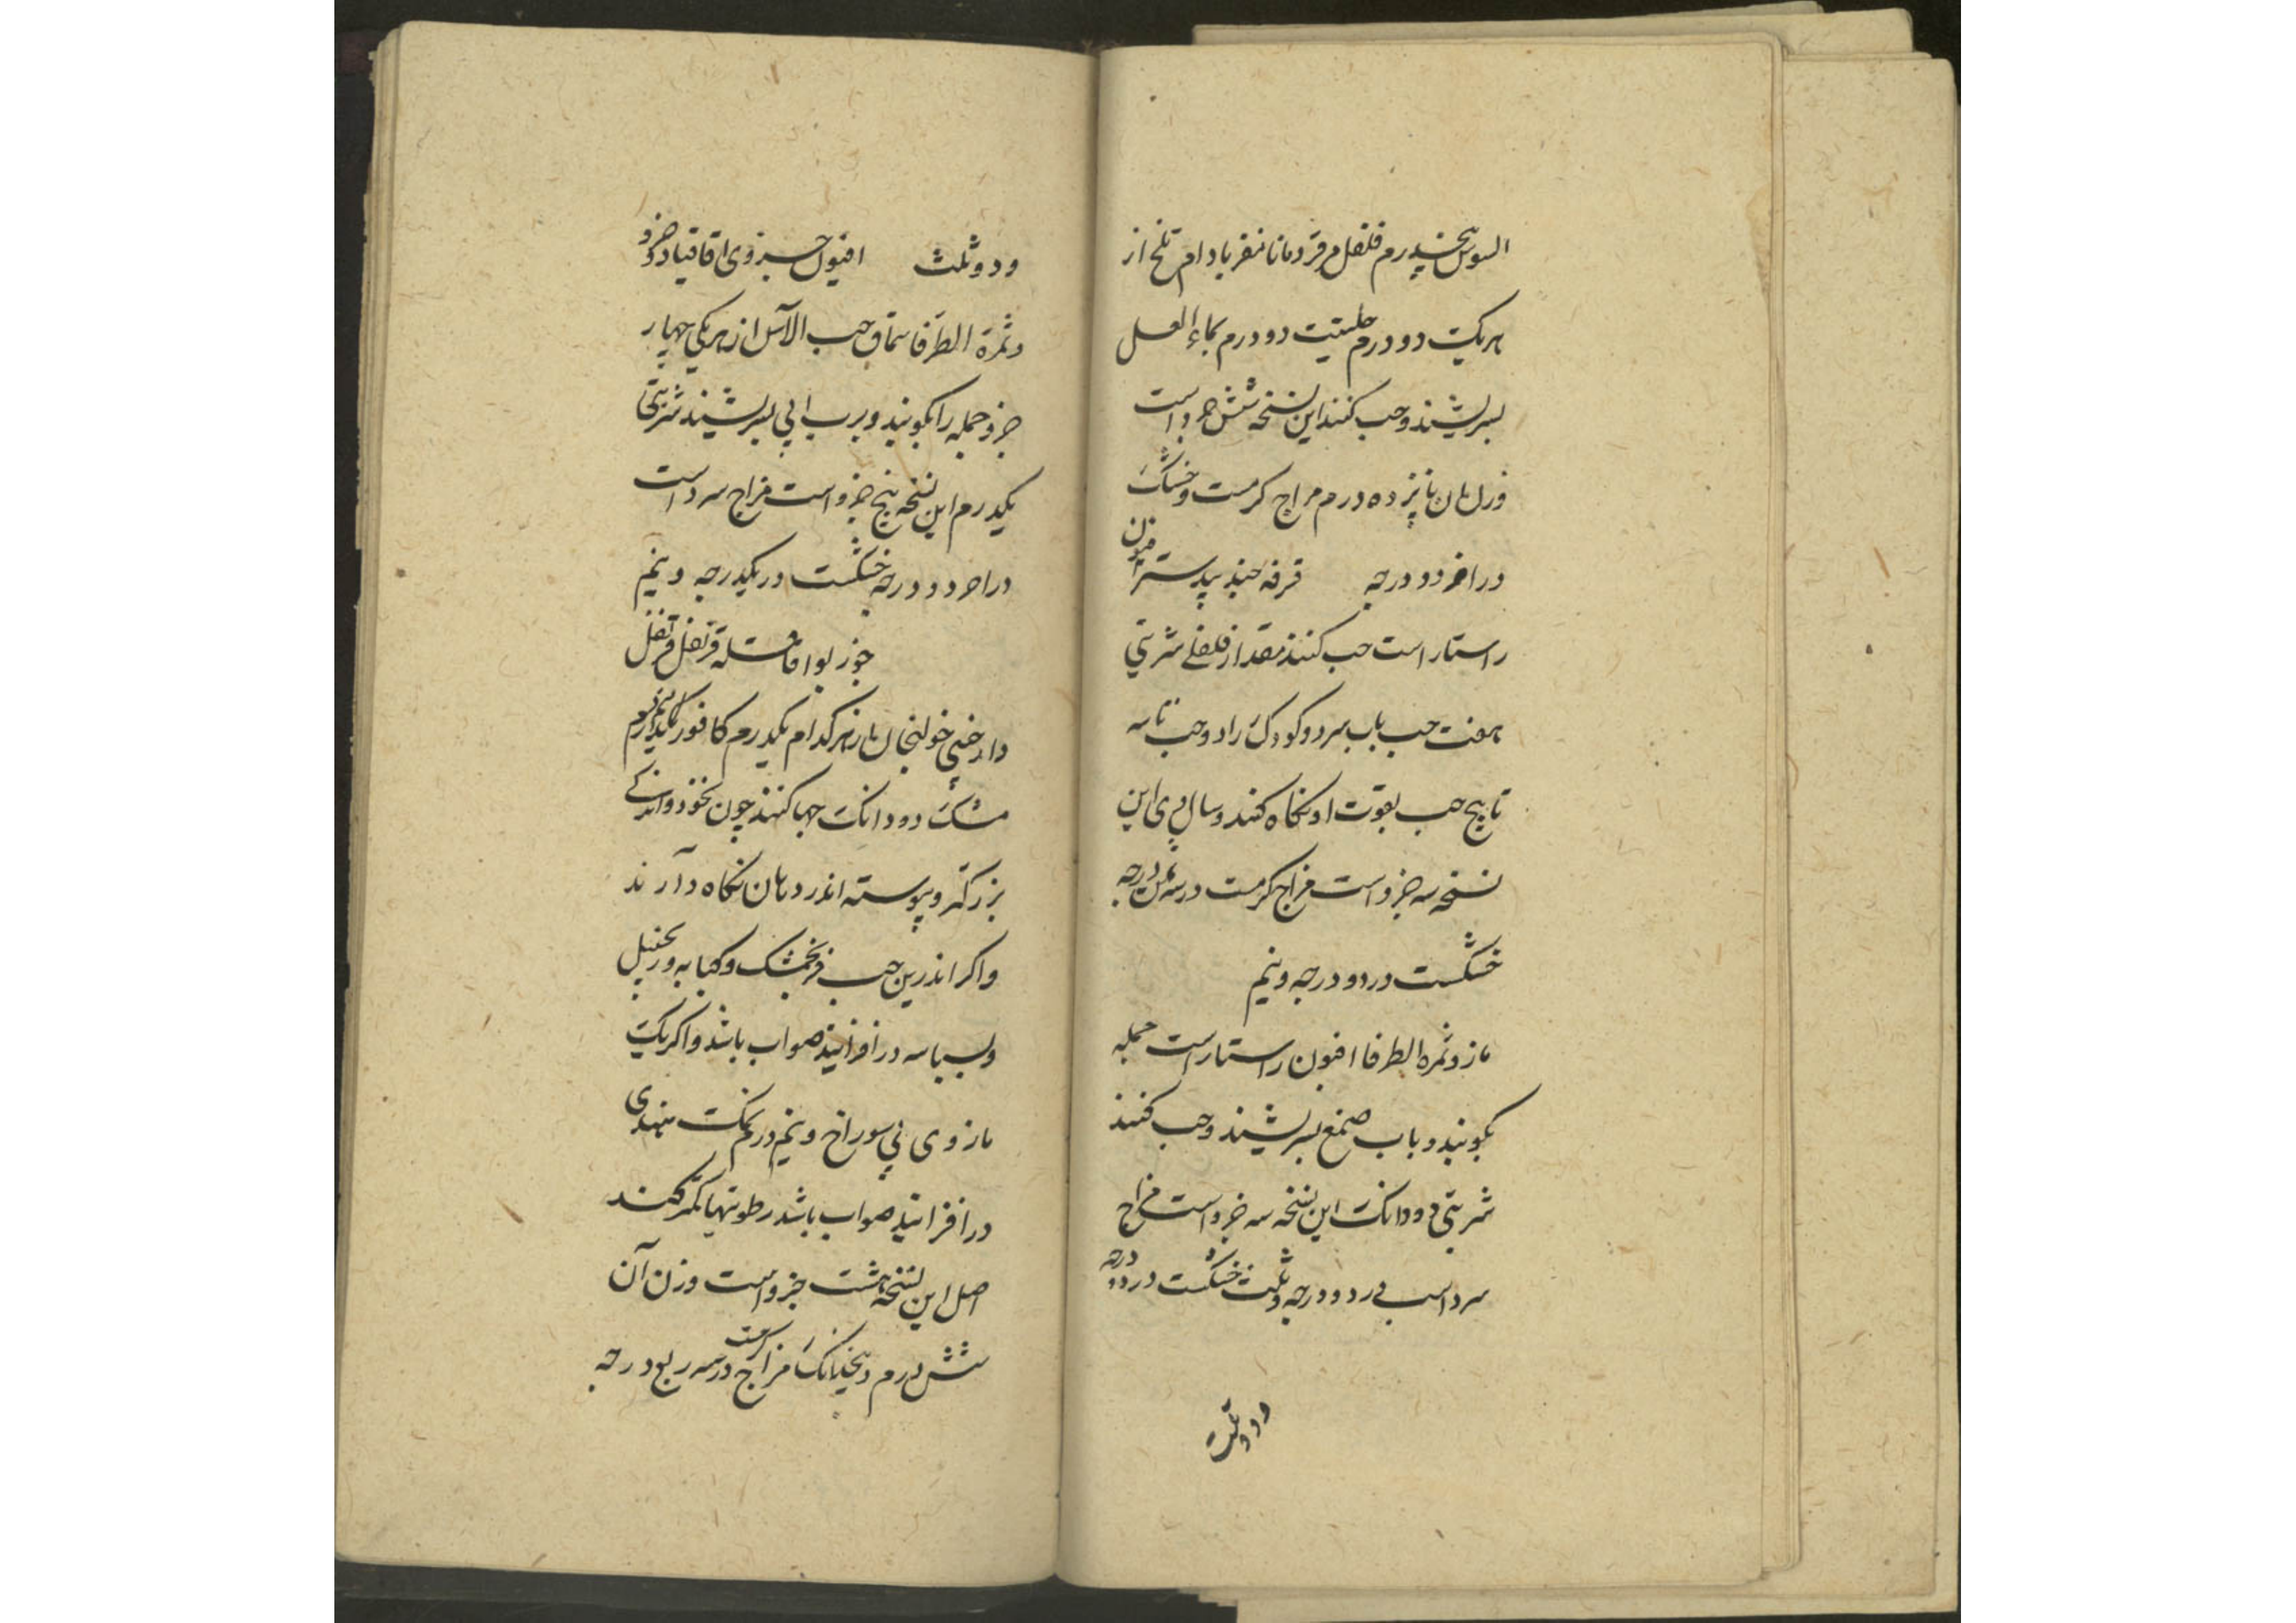 السوس پنجدرم فلفل و قردمانا مغز بادام تلخ از
هریک دو درم حلتیت دو درم بماء العسل
بسرشند و حب کنند این نسخه شش جزو است
وزن آن پانزده درم مزاج گرمست و خشک
در آخر دو درجه قرفه جندبیدستر افیون
راستاراست حب کنند مقدار فلفلی شربتی
هفت حب بآب سرد و کودک را دو حب تا سه
تا پنج حب بقوت او نگاه کنند و سال وی این
نسخه سه جزو است مزاج گرمست در سه ثلث درجه
خشکست در دو درجه و نیم
مازو ثمره الطرفا افیون راستاراست جمله
بکوبند و بآب صمغ بسرشند و حب کنند
شربتی دو دانک این نسخه سه جزو است مزاج
سرد است در دو درجه و ثلث خشکست در دو درجه
و دو ثلث
و دو ثلث افیون جزوی اقاقیا دو جزو
و ثمرة الطرفا سماق حب الآس از هر یکی چهار
جزو جمله را بکوبند و برب ابی بسرشند شربتی
یکدرم این نسخه پنج جزو است مزاج سرد است
در آخر دو درجه خشکست در یکدرجه و نیم
جوز بوا قاقله قرنفل قرنفل
دارچینی خولنجان از هر کدام یکدرم کافور نیم درم
مشک دو دانک حبها کنند چون نخود و اندکی
بزرگتر و پیوسته اندر دهان نگاه دارند
و اکر اندرین حب فرنجمشک و کبابه و زنجبیل
و بسباسه در افزایند صواب باشد و اکر یک
مازوی بی سوراخ و نیم درم نمک هندی
در افزایند صواب باشد رطوبتها کمتر کند
اصل این نسخه هشت جزو است وزن آن
شش درم و پنجدانک مزاج گرمست در سه ربع درجه